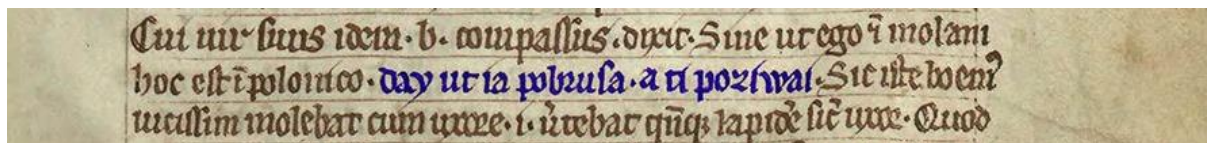 Cui uir suus idem · b · compassus · dixit · Sine ut ego ī molam
hoc est ī polonico · day ut ia pobrusa · a ti poziwai · Sic iste boem᷒
uicissim molebat cum uxore · i · u̾tebat qn̄q; lapidē sic̄ uxor · Quod